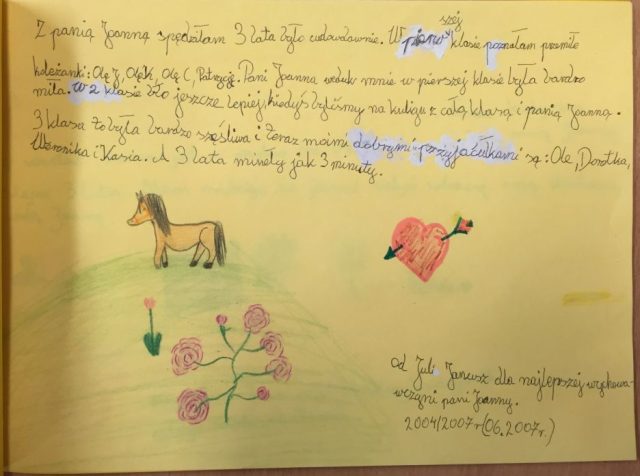 Z panią Joanną spędziłam 3 lata było cudowdawnie. W pierw szej klasie poznałam przemiłe
koleżanki: Olę J, Olę K, Olę C, Patrycję. Pani Joanna według mnie w pierszej klasie była bardzo
miła. W 2 klasie bło jeszcze lepiej, kiedyś byliśmy na kuligu z całą klasą i panią Joanną.
3 klasa to była bardzo szęśliwa i teraz moimi dobrymi "przyjaćułkami" są: Ole, Dorotka,
Weronika i Kasia. A 3 lata minęły jak 3 minuty.
od Juli Janusz dla najlepszej wychowa-
wczyni pani Joanny.
2004/2007 r (06.2007r.)